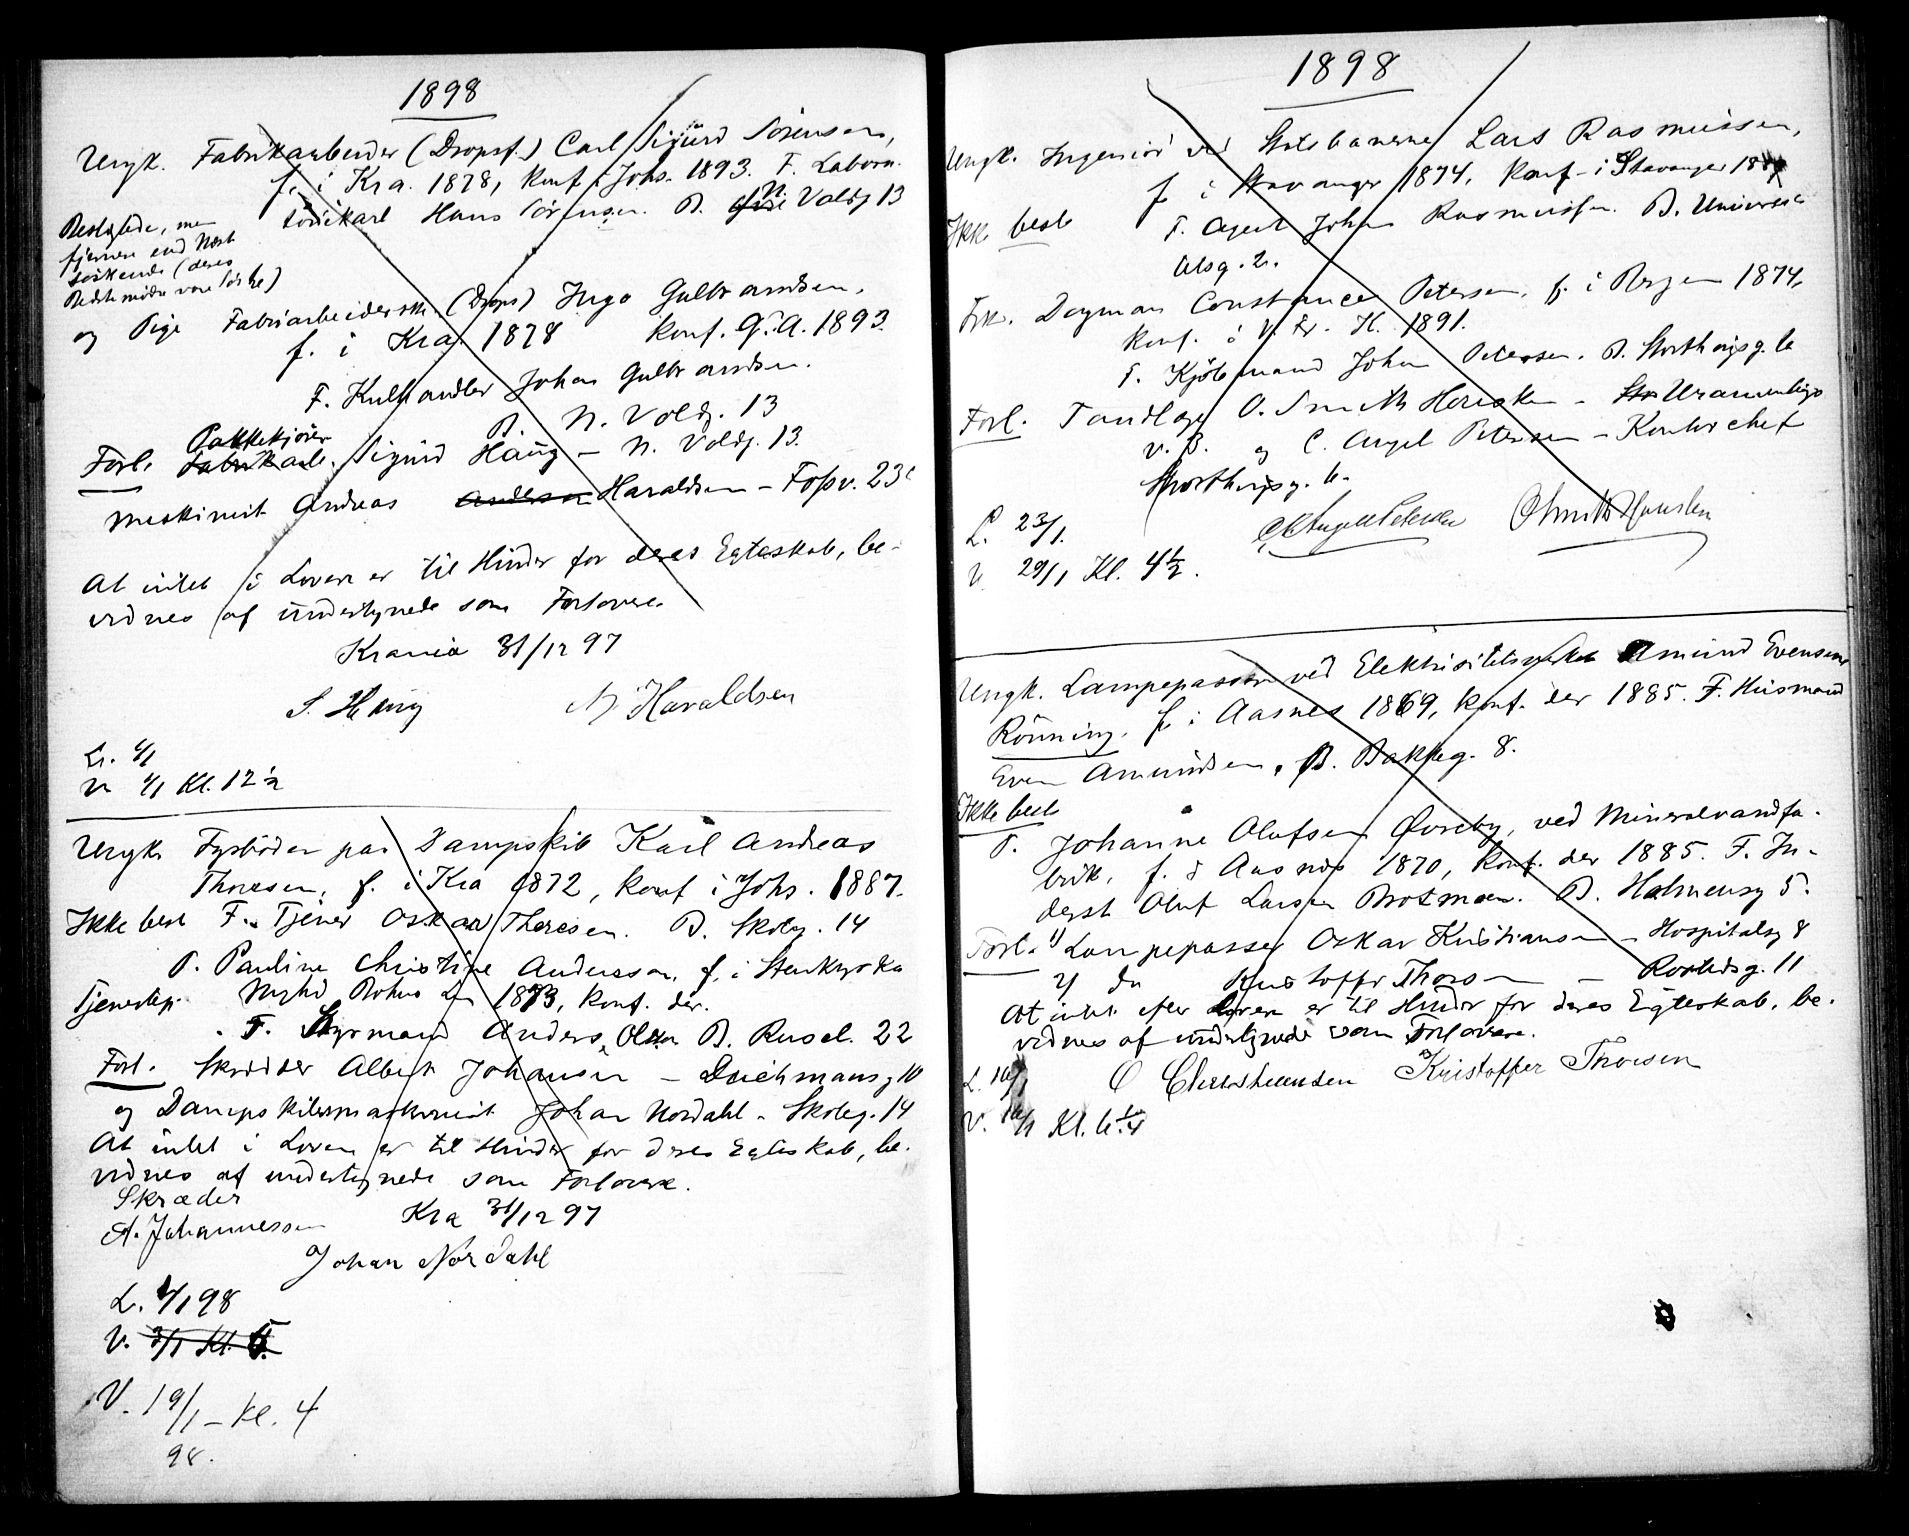 1898
Ungk. Fabrikarbeider (Dropsf.) Carl Sigurd Sörensen,
f. i Kra. 1878, konf. i Johs. 1893. F. Labora-
toriekarl Hans Sörensen. B. N. Voldg 13
Beslægtede, men
fjernere end Næst
söskende (deres
Bedstemödre vare Söstre)
og Pige Fabriarbeiderske (Drops) Inga Gulbrandsen,
f. i Kra. 1878 konf. G.A. 1893.
F. Kulhandler Johan Gulbrandsen.
B. N. Voldg. 13
Pakkekjörer
Forl. Sigurd Haug – N. Voldg. 13.
Maskinist Andreas Andersen Haraldsen – Fossv. 23c
At intet i Loven er til Hinder for deres Egteskab, be-
vidnes af undertegnede som Forlovere.
Krania 31/12 97
S. Haug A. Haraldsen
L. 6/1
V. 6/1 Kl. 12 1/2
Ungk. Fyrböder paa Dampskib Karl Andreas
Thoresen, f. i Kra 1872, konf i Johs. 1887.
Ikke besl F. Tjener Oskar Thoresen. B. Skoleg. 14
P. Pauline Christine Andersson, f. i Stenkyrka
Tjenestep. Bohus Len 1873, konf. der.
F. Styrmand Anders Olsson B. Rusel. 22
Forl. Skrædder Albert Johansen – Deichmansg 10
og Dampskibsmaskinist Johan Nordahl – Skoleg. 14
At intet i Loven er til Hinder for deres Egteskab, be-
vidnes af undertegnede som Forlovere.
Skræder
A. Johannessen Kra 31/12 97
Johan Nordahl
L. 4/1 98
V. 3/1 Kl. 5.
V. 19/1 – Kl. 4
98.
1898
Ungk. Ingeniör ved Statsbanerne Lars Rasmussen,
f. i Stavanger 1874, konf. i Stavanger
Ikke besl F. Agent Johan Rasmussen. B. Universi-
tetsg. 2.
Frk. Dagmar Constance Petersen, f. i Bergen 1874,
konf. i V. Fr. K. 1891.
F. Kjöbmand Johan Petersen. B. Storthingsg. 6
Forl. Tandlæge O. Smith Housken – Uranienborgs
v. 3. og C. Angel Petersen – Kontorchef
Storthingsg. 6.
L. 23/1.
C Angell Petersen O Smith Housken
V. 29/1 Kl. 4 1/2.
Ungk. Lampepasser ved Elektrisitetsverket Amund Evensen
Rönning, f. i Aasnes 1869, konf. der 1885. F. Husmand
Even Amundsen, B. Bakkeg. 8.
Ikke besl
P. Johanne Olufsen Øvreby, ved Mineralvandfa-
brik, f. i Aasnes 1870, konf. der 1885. F. In-
derst Oluf Larsen Brotmoen. B. Holmensg 5.
Forl. 1) Lampepasser Oskar Kristiansen – Hospitalsg 8
2) do Kristoffer Thorsen – Rostedsg. 11
At intet efter Loven er til Hinder for deres Egteskab, be-
vidnes af undertegnede som Forlovere.
L. 16/1 O Christiansen Kristoffer Thorsen
V. 16/1 Kl. 6 1/4